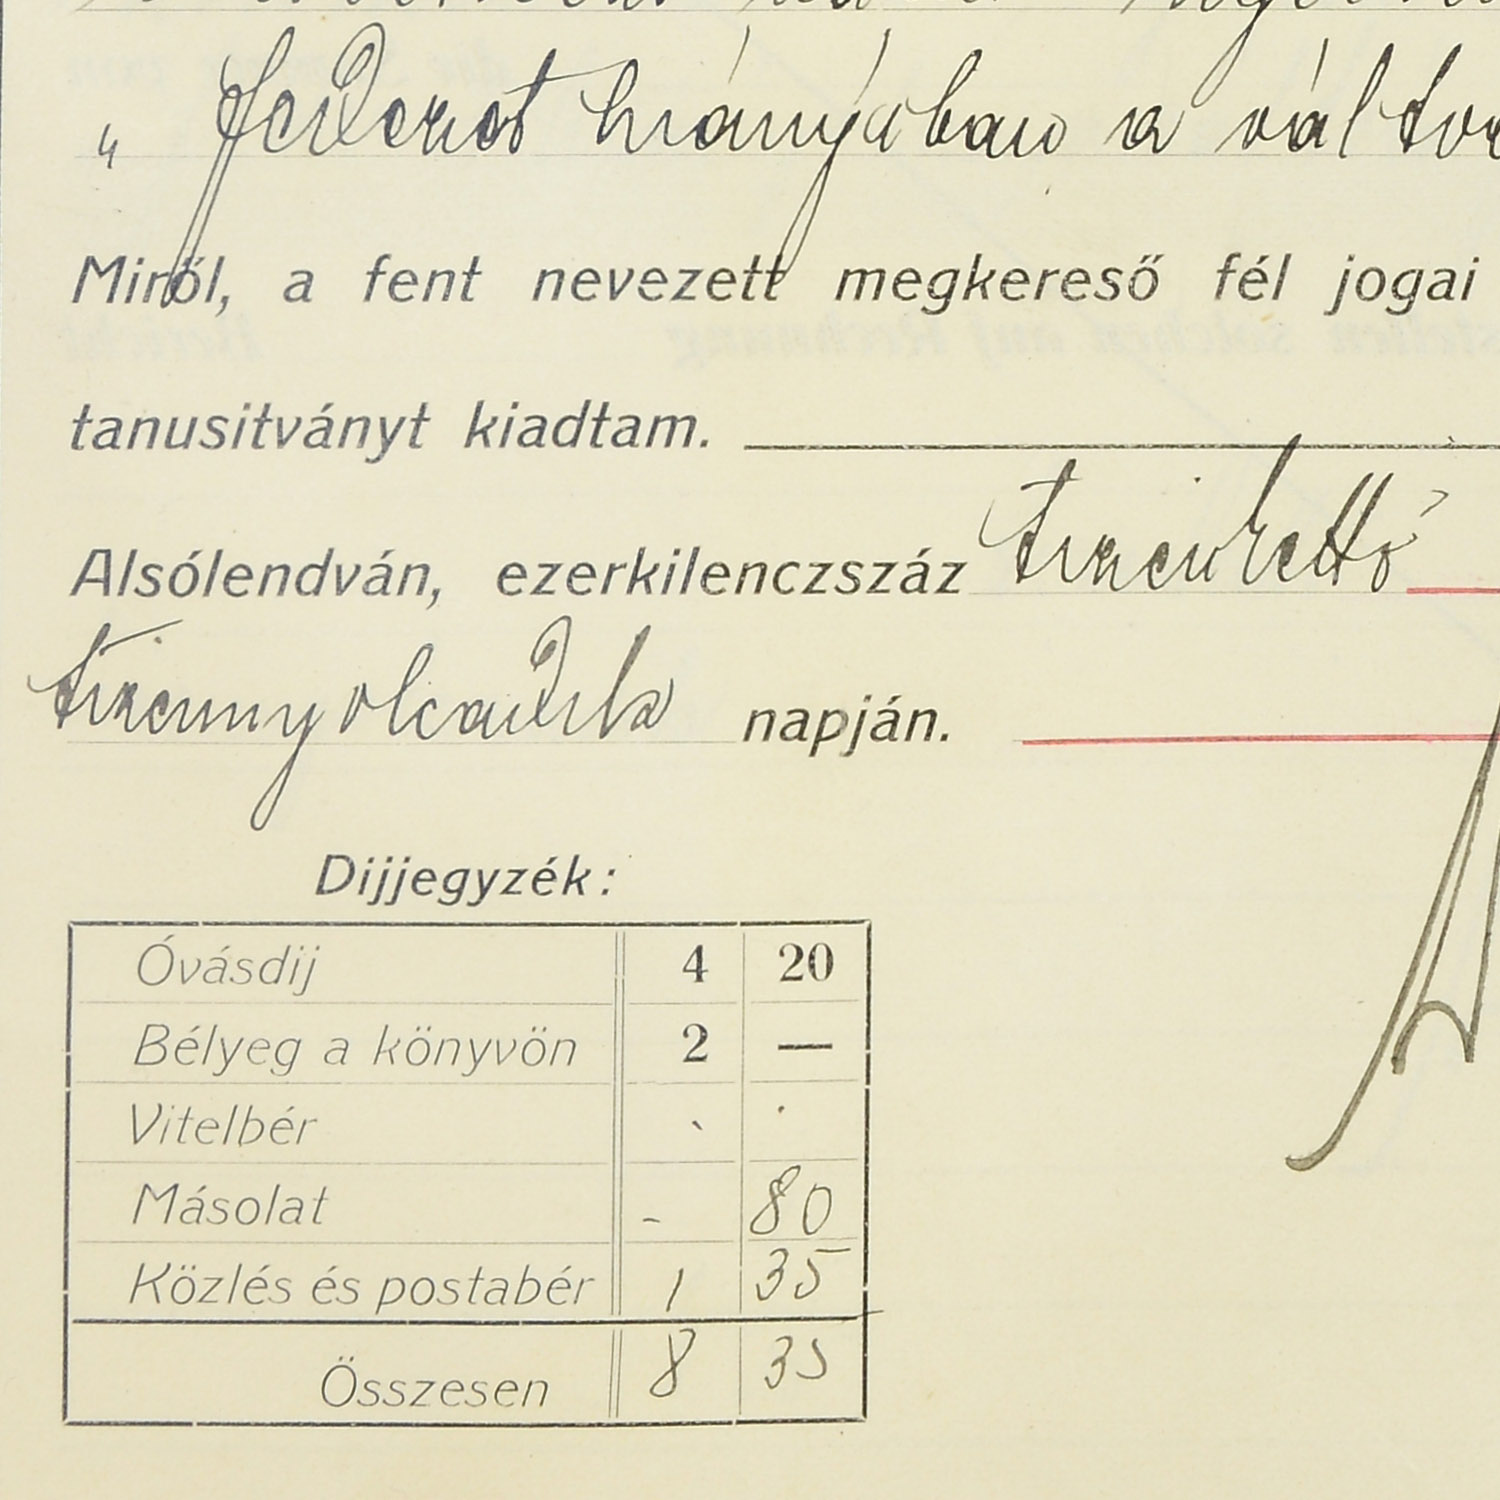 „ fedezet hiányában a vál
Miről, a fent nevezett megkereső fél jogai
tanusitványt kiadtam.
Alsólendván, ezerkilenczszáz tizenkettő
tizennyolcadik napján.
Dijjegyzék:
Óvásdij 4 20
Bélyeg a könyvön 2 —
Vitelbér
Másolat - 80
Közlés és postabér 1 35
Összesen 8 35